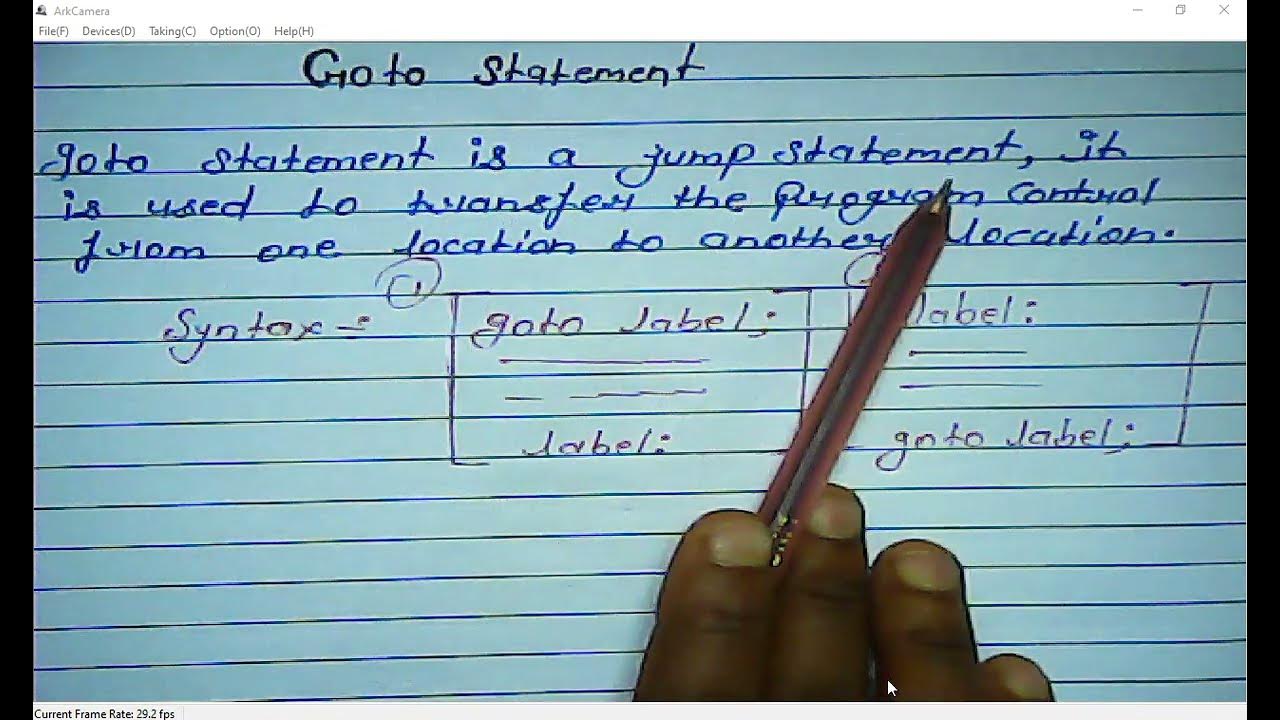 ArkCamera
File(F) Devices(D) Taking(C) Option(O) Help(H)
Goto Statement
goto statement is a jump statement, it
is used to transfer the Program Control
from one location to another location.
Syntax :-
1
goto label;
label:
label:
goto label;
Current Frame Rate: 29.2 fps